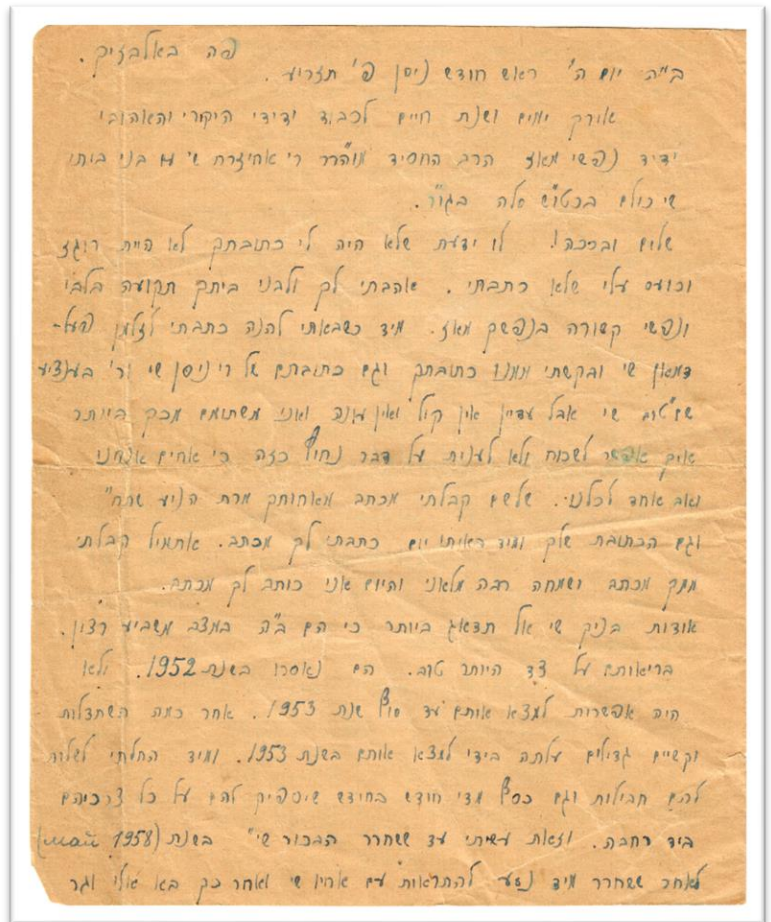 פה באלבזיק.
ב"ה יום ה' ראש חודש ניסן פ' תזריע.
אורך ימים ושנות חיים לכבוד ידידי היקר והאהוב
ידיד נפשי מאז הרב החסיד מוהרר ר' אחיעזרת שי' עם בני ביתו
שי' כולם בכטו"ס סלה בגו"ר.
שלום וברכה! לו ידעת שלא היה לי כתובתך לא היית רוגז
וכועס עלי שלא כתבתי. אהבתי לך ולבני ביתך תקועה בלבי
ונפשי קשורה בנפשך מאז. מיד כשבאתי להנה כתבתי לזלמן פעל-
דמאן שי' ובקשתי ממנו כתובתך וגם כתובתם של ר' ניסן שי' ור' בענציע
שי' אבל עדיין אין קול ואין עונה ואני משתומם מכך ביותר
איך אפשר לשכוח ולא לענות על דבר נחוץ כזה כי אחים אנחנו
ואב אחד לכלנו. שלשם קבלתי מכתב מאחותך מרת הניע שתח"
וגם הכתובת שלך ומיד באותו יום כתבתי לך מכתב. אתמול קבלתי
ממך מכתב ושמחה רבה מלאני והיום אני כותב לך מכתב.
אודות בניך שי' אל תדאג ביותר כי הם ב"ה במצב משביע רצון.
בריאותם על צד היותר טוב. הם נאסרו בשנת 1952. ולא
היה אפשרות למצא אותם עד סוף שנת 1953. אחר כמה השתדלות
וקשיים גדולים עלתה בידי למצא אותם בשנת 1953. ומיד החלתי לשלוח
להם חבילות וגם כסף מדי חודש בחודש שיספיק להם על כל צרכיהם
ביד רחבה. וזאת עשיתי עד ששחרר הבכור שי' בשנת (май 1958)
לאחר ששחרר מיד נסע להתראות עם אחיו שי' ואחר כך בא אלי וגר